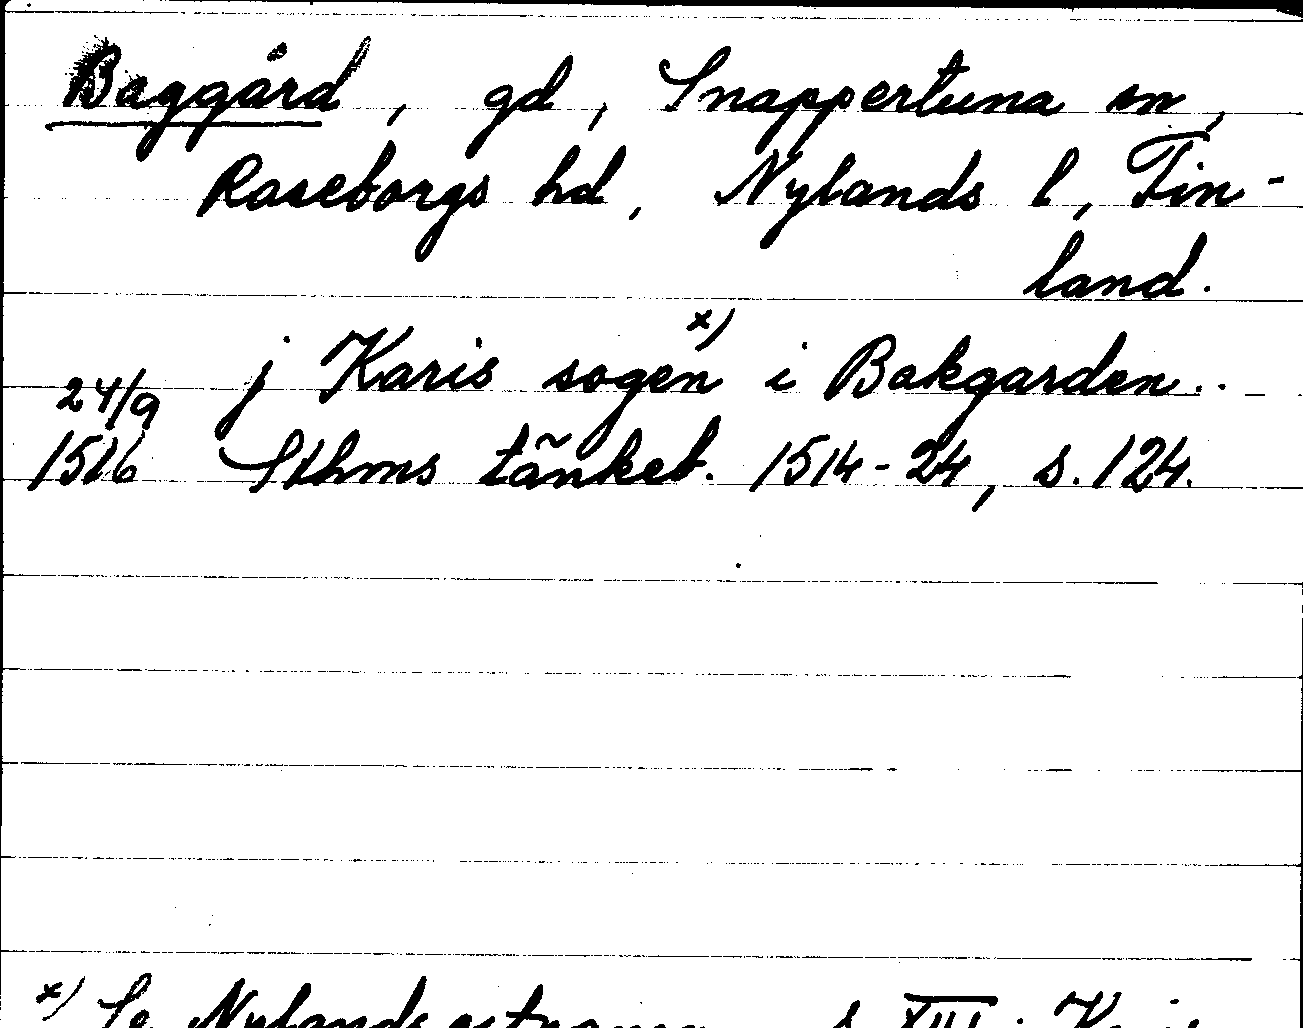 Baggård, gd, Snappertuna sn,
Raseborgs hd, Nylands l, Fin-
land.
24/9 j Karis sogen x) i Bakgarden..
1516 Sthms tänkeb. 1514-24, s. 124.
x) Se Nylands ortnamn s XIII: Karis